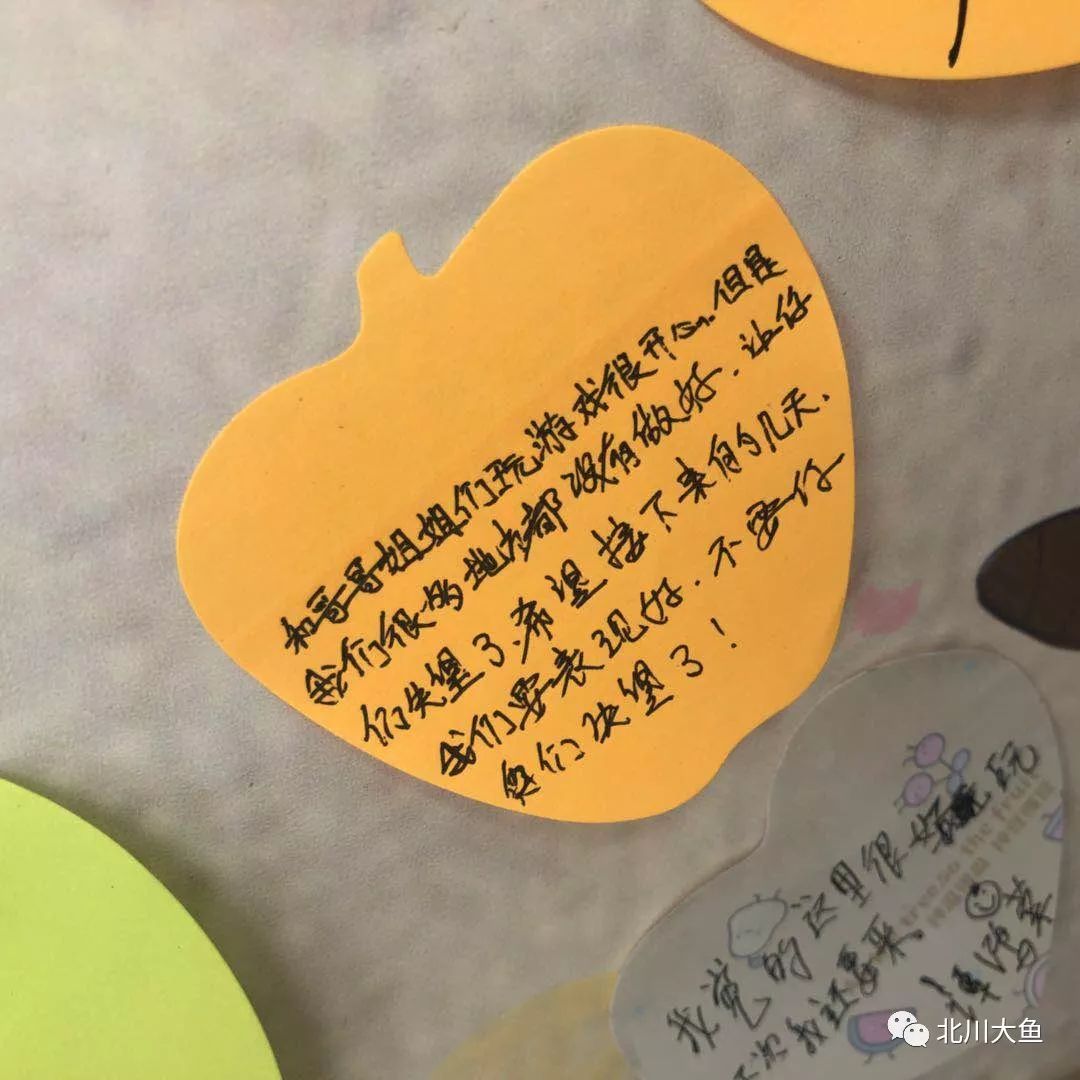 和哥哥姐姐们玩游戏很开心.但是
我们很多地方都没有做好.让你
们失望了.希望接下来的几天.
我们要表现好.不要你
们失望了!
我觉的这里很好玩
下次我还要来。
北川大鱼